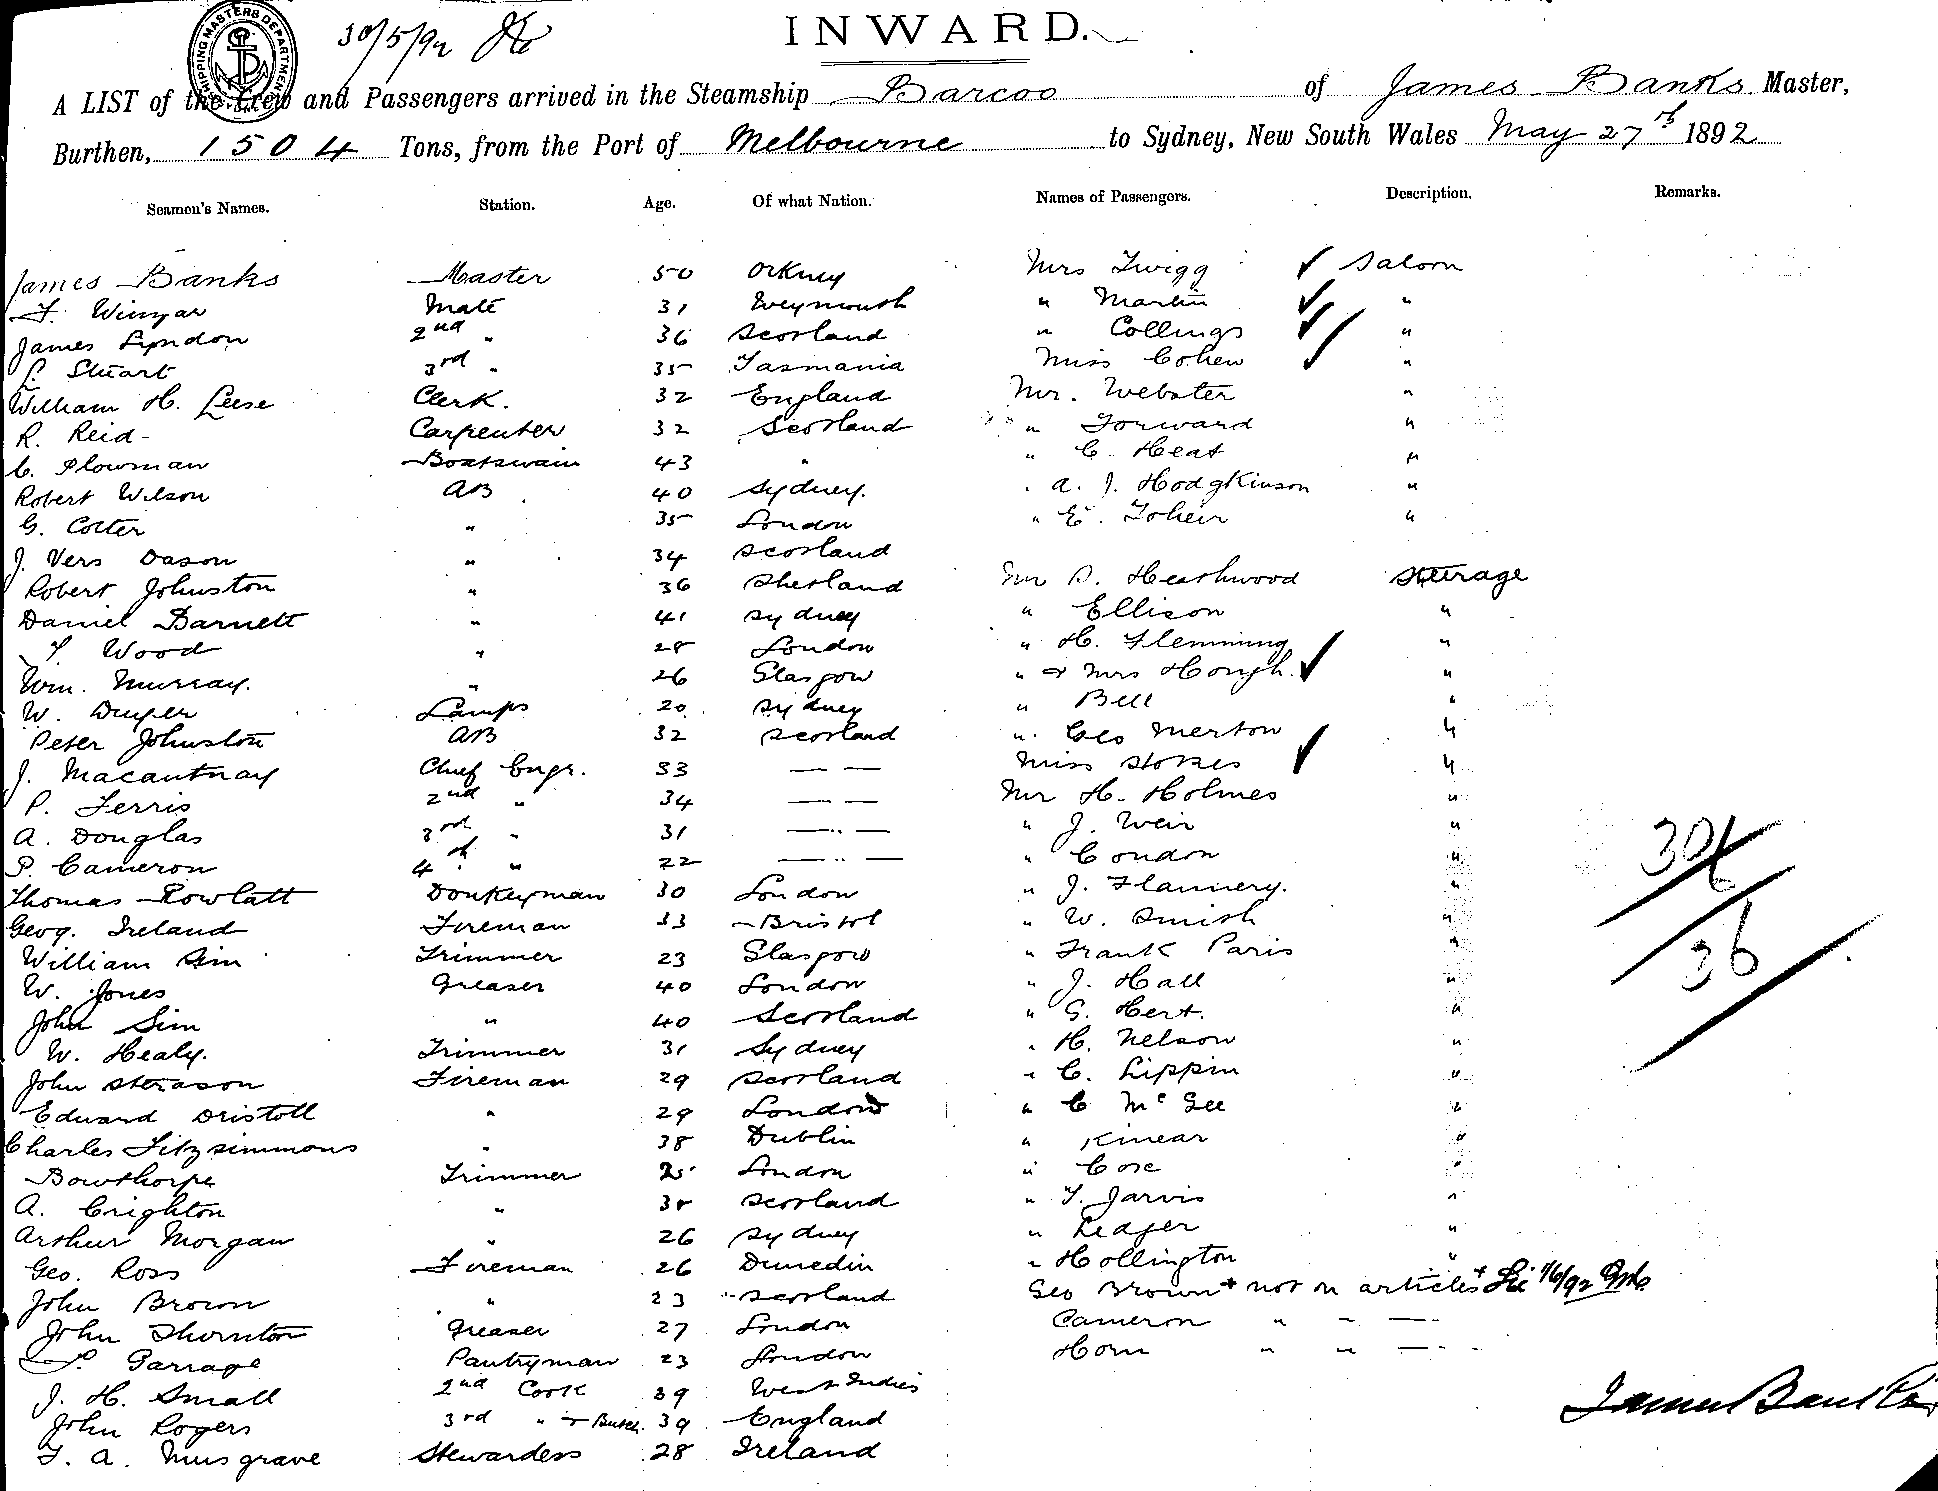 SHIPPING MASTERS DEPARTMENT
30/5/92
INWARD.
A LIST of the Crew and Passengers arrived in the Steamship Barcoo of James Banks Master,
Burthen, 1504 Tons, from the Port of Melbourne to Sydney, New South Wales May 27th 1892
Seamen's Names. Station. Age. Of what Nation. Names of Passengers. Description. Remarks.
James Banks Master 50 Orkney Mrs Twigg ✓ Saloon
F. Winyar Mate 31 Weymouth " Martin ✓ "
James Lyndon 2nd " 36 Scotland " Collings ✓ "
Stuart 3rd " 35 Tasmania Miss Cohen ✓ "
William H. Leese Clerk. 32 England Mr. Webster "
R. Reid Carpenter 32 Scotland " Forward "
C. Plowman Boatswain 43 " " C. Heat "
Robert Wilson AB 40 Sydney. " A. J. Hodgkinson "
G. Cotter " 35 London " E. "
J. Vers Dason " 34 Scotland
Robert Johnston " 36 Shetland Mr S. Heathwood Steerage
Daniel Barnett " 41 Sydney " Ellison "
T Wood " 28 London " H. Flemming "
Wm. Murray. " 26 Glasgow " & Mrs Hough. ✓ "
W. Dwyer Lamps 20 Sydney " Bell "
Peter Johnston AB 32 Scotland " Geo Merton "
J. Macautnay Chief Engr. 33 — — Miss Stokes ✓ "
P. Ferris 2nd " 34 — — Mr H. Holmes "
A. Douglas 3rd " 31 — " — " J. Weir "
P. Cameron 4th " 22 — " — " Condon "
Thomas Rowlatt Donkeyman 30 London " J. Flannery. "
Geog. Ireland Fireman 33 Bristol " W. Smith "
William Sim Trimmer 23 Glasgow " Frank Paris "
W. Jones Greaser 40 London " J. Hall "
John Sim " 40 Scotland " G. Hert. "
W. Healy. Trimmer 31 Sydney " H. Nelson "
John Fireman 29 Scotland " C. Lippin "
Edward Dristoll " 29 London " C McGee "
Charles Fitzsimmons " 38 Dublin " Kinear "
Bowthorpe Trimmer 25 London " "
A. Crighton " 38 Scotland " T. Jarvis "
Arthur Morgan " 26 Sydney " Ledger "
Geo. Ross Fireman 26 Dunedin " Hollington "
John Brown " 23 Scotland Geo Brown + not on articles + 1/6/92
John Thornton Greaser 27 London Cameron " " —
Garrage Pantryman 23 London Horn " " —
J. H. Small 2nd Cook 39 West Indies
John Rogers 3rd " & Butch. 39 England
F. A. Musgrave Stewardess 28 Ireland
36
James Banks